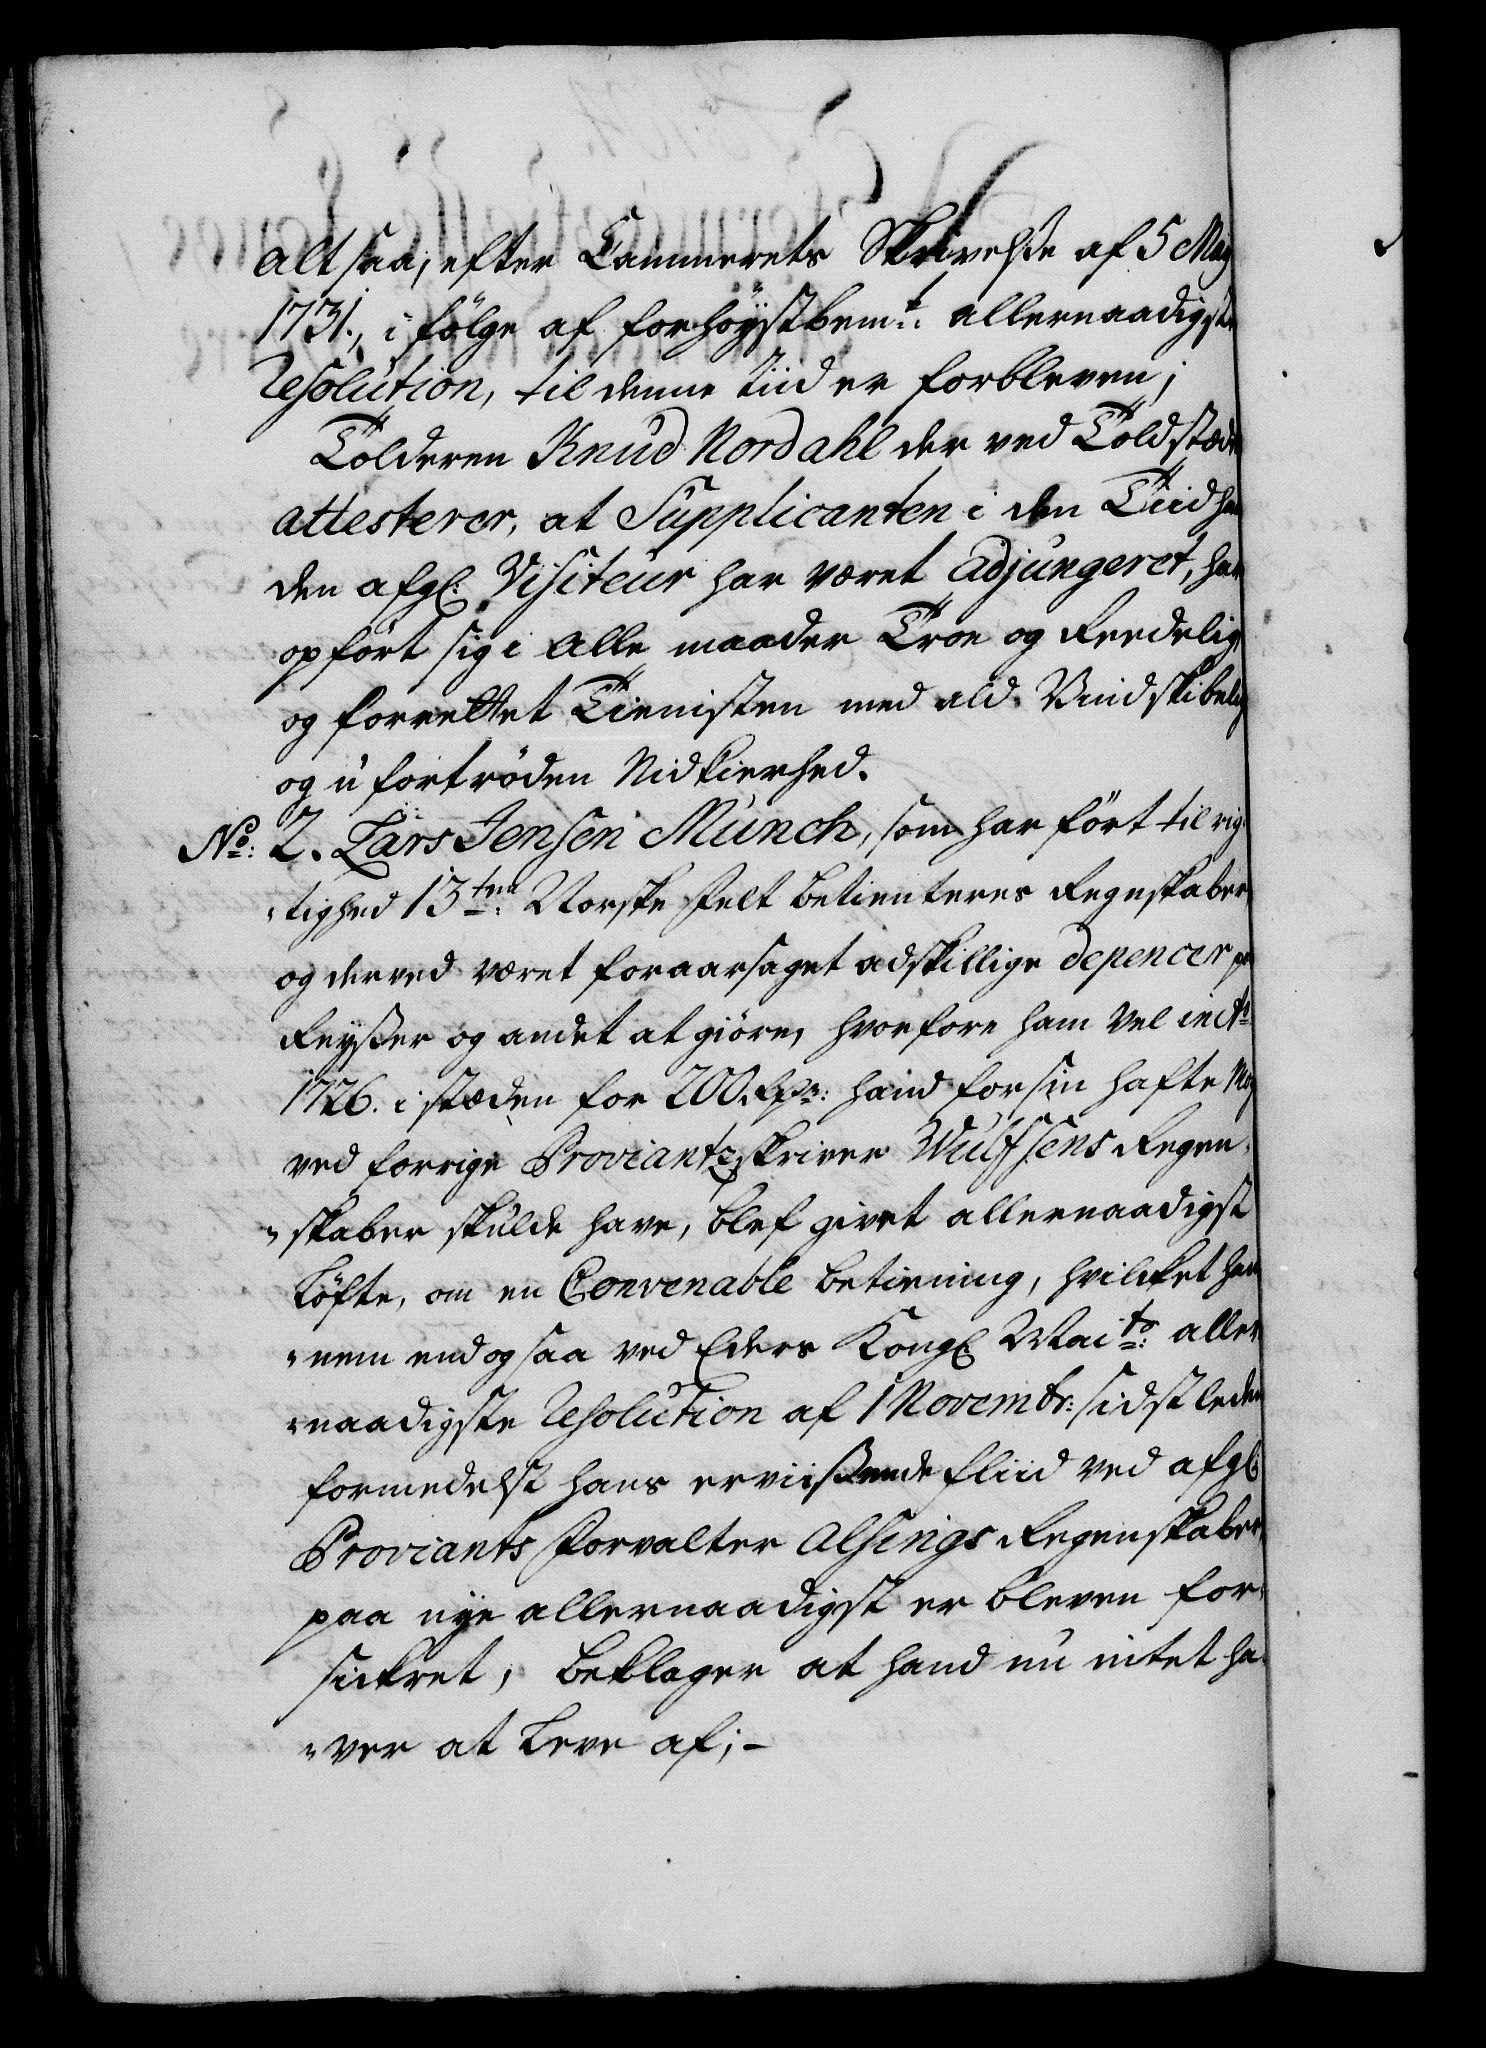 alt saa, efter Cammerets Skrivelse af 5 May
1731, i fölge af forhöystbemte: allernaadigste
Resolution, til denne tiid er forbleven;
Tolderen Knud Nordahl der ved Toldstædet
attesterer, at Supplicanten i den Tiid hand
den afgl: Visiteur har været adjungeret, har
opfört sig i alle maader Troe og Reedelig,
og forrettet Tienisten med ald Vindskibelig
og ufortröden Nidkierhed.
No: 2. Lars Jensen Münch, som har fört til rig-
tighed 13ten: Norske Felt betienteres Regnskaber,
og derved været foraarsaget adskillige depencer paa
Reysser og andet at giöre, hvorfore ham vel in Ao
1726. i stæden for 200 Rdr: hand for sin hafte May
ved forrige Proviantskriver Wulfsens Regen-
skaber skulde have, blef givet allernaadigst
Löfte, om en Convenable betiening, hvilket han-
nem end og saa ved Eders Kongl: Maits: aller-
naadigste Resolution af 1 Novembr: sidst leden
formedelst hans erviisende fliid ved afgl:
Proviants Forvalter Alsings Regenskaber,
paa nye allernaadigst er bleven for-
sikret, beklager at hand nu intet ha-
ver at leve af;-